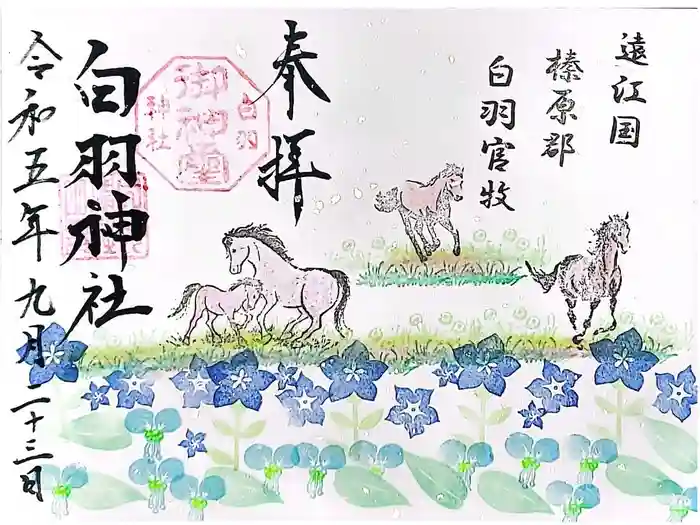 遠江国
榛原郡
白羽官牧
奉拝
白羽
御神璽
神社
白羽神社
令和五年九月二十三日